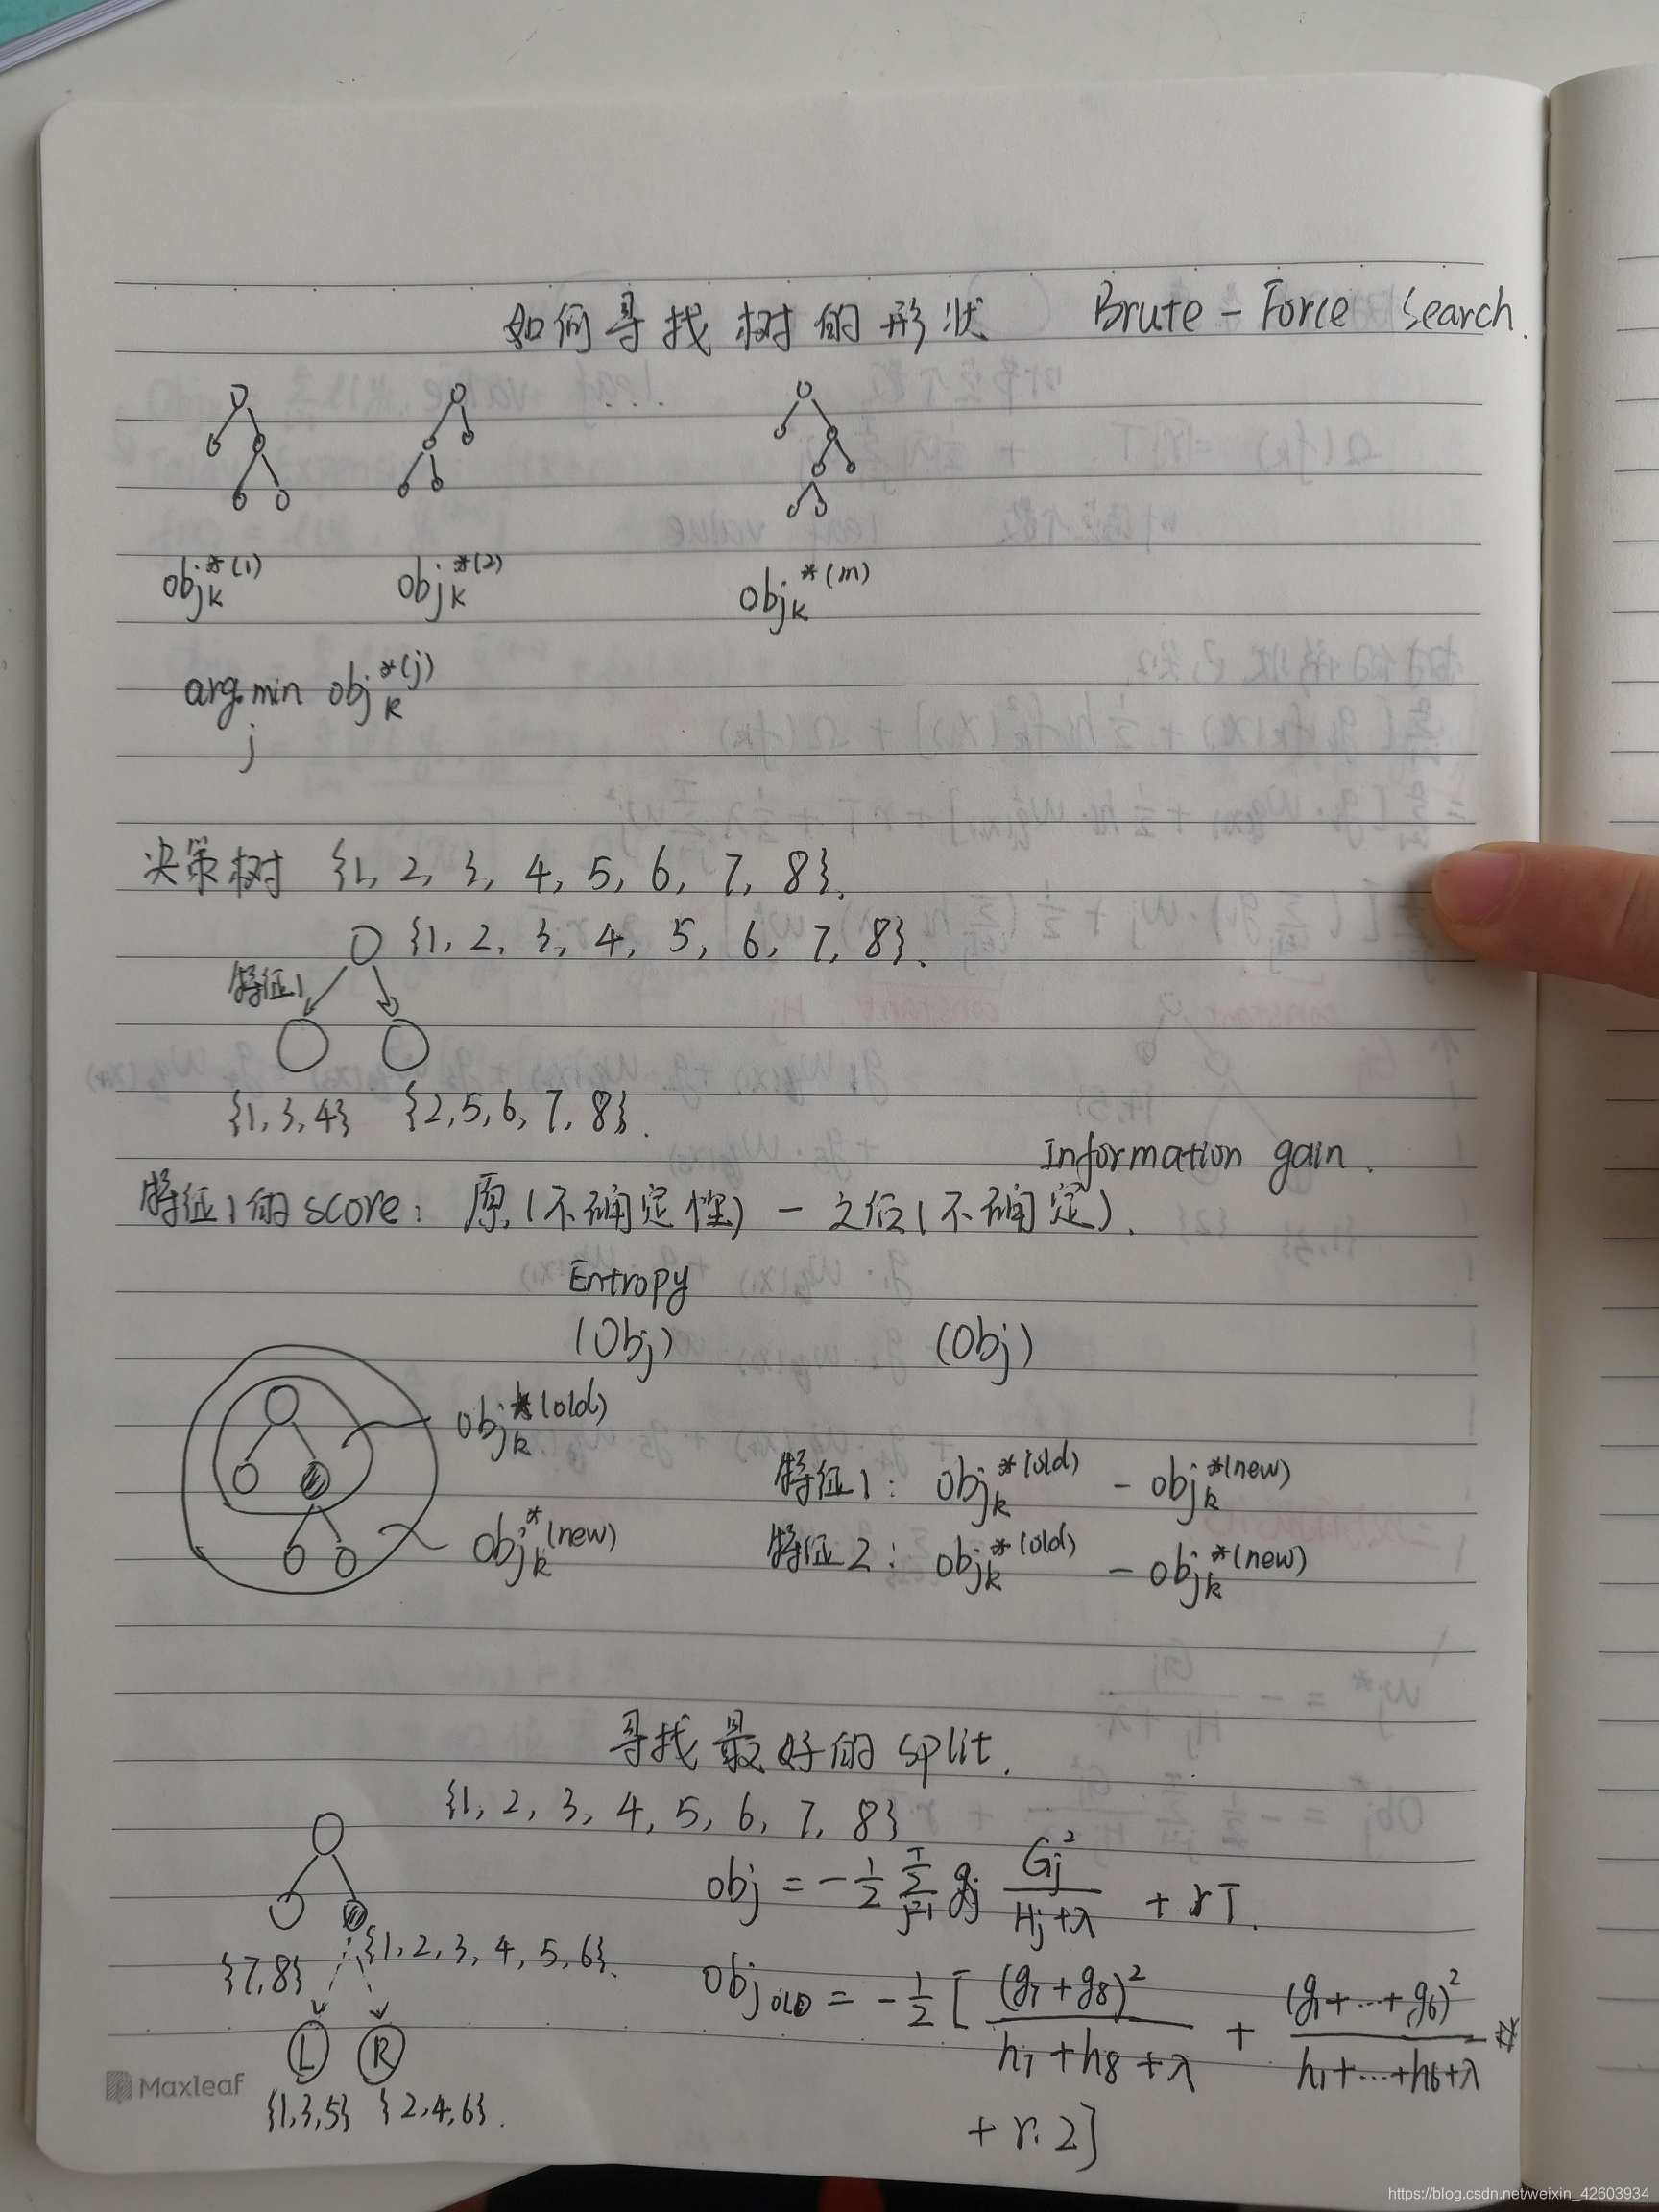 如何寻找树的形状 Brute-Force Search.
. . .
obj_k^{*(1)} obj_k^{*(2)} obj_k^{*(m)}
arg.min obj_k^{*(j)}
j
决策树 {1, 2, 3, 4, 5, 6, 7, 8}.
{1, 2, 3, 4, 5, 6, 7, 8}.
特征1
{1,3,4} {2,5,6,7,8}.
Information gain.
特征1的score: 原(不确定性) - 之后(不确定).
Entropy
(Obj) (Obj)
obj_k^{*(old)}
特征1: obj_k^{*(old)} - obj_k^{*(new)}
obj_k^{*(new)}
特征2: obj_k^{*(old)} - obj_k^{*(new)}
寻找最好的split.
{1, 2, 3, 4, 5, 6, 7, 8}
obj = -1/2 Σ_{j=1}^{T} G_j^2/(H_j+λ) + γT.
{7,8} {1, 2, 3, 4, 5, 6}.
obj_OLD = -1/2 [ (g7+g8)^2/(h7+h8+λ) + (g1+...+g6)^2/(h1+...+h6+λ)
+ γ.2]
L R
{1,3,5} {2,4,6}.
Maxleaf
https://blog.csdn.net/weixin_42603934